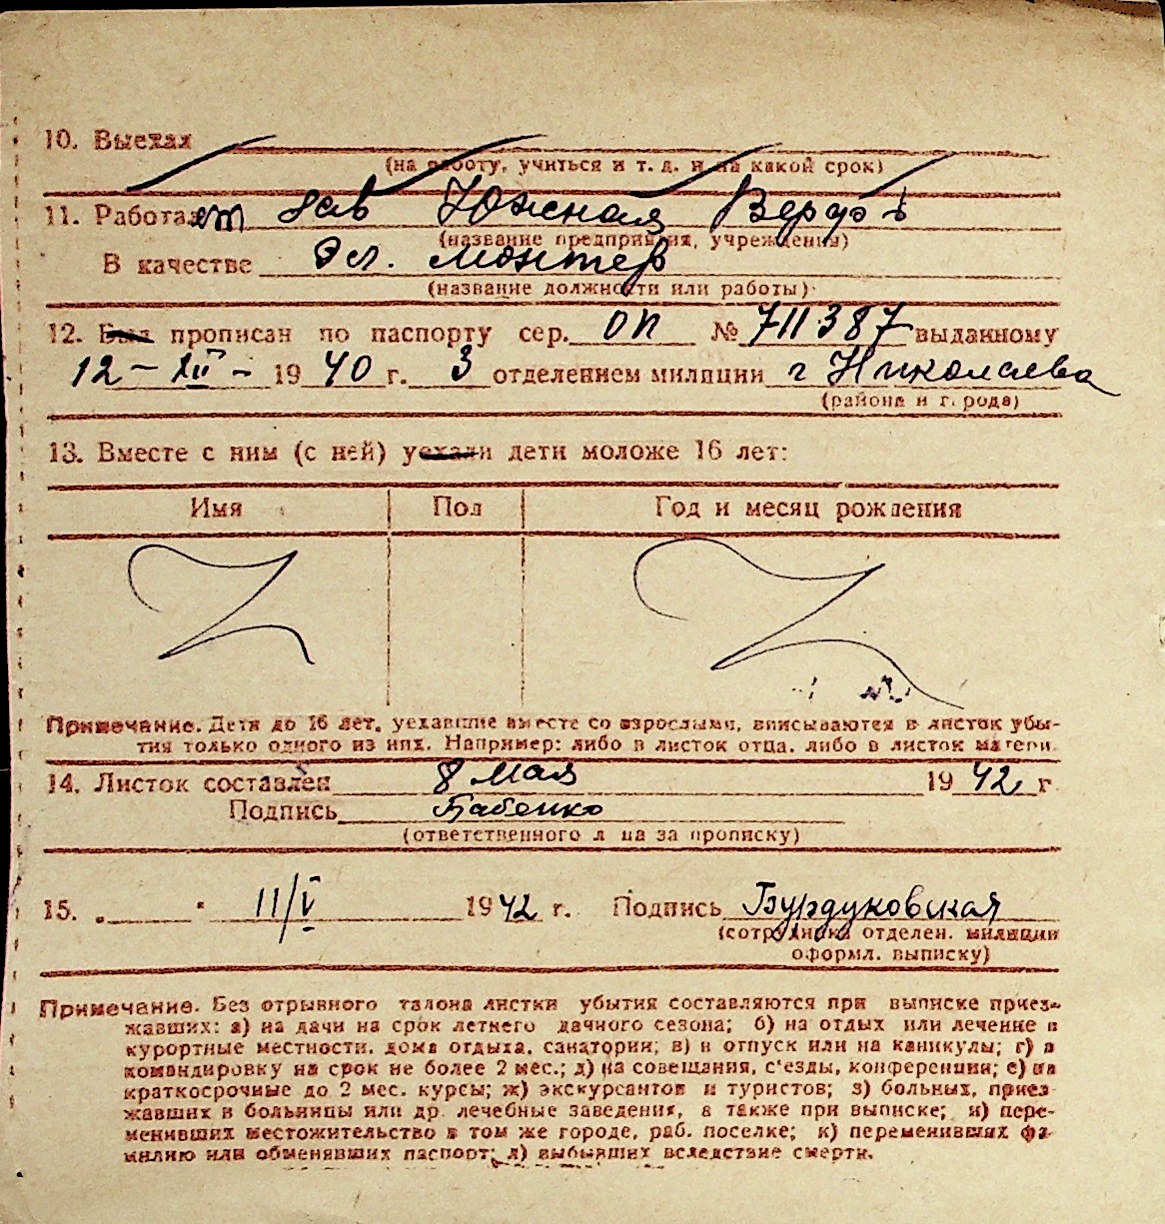 10. Выехал
(на работу, учиться и т. д. и на какой срок)
11. Работает зав Южная Верфь
(название предприятия, учреждения)
В качестве Эл. монтер
(название должности или работы)
12. Был прописан по паспорту сер. ОП № 711387 выданному
12 - XII - 1940 г. 3 отделением милиции г Николаева
(района и города)
13. Вместе с ним (с ней) уехали дети моложе 16 лет:
Имя Пол Год и месяц рождения
Примечание. Дети до 16 лет, уехавшие вместе со взрослыми, вписываются в листок убы-
тия только одного из них. Например: либо в листок отца, либо в листок матери.
14. Листок составлен 8 мая 1942 г
Подпись Бабенко
(ответственного лица за прописку)
15. „ " 11/V 1942 г. Подпись Бурдуковская
(сотрудника отделен. милиции
оформл. выписку)
Примечание. Без отрывного талона листки убытия составляются при выписке приез-
жавших: а) на дачи на срок летнего дачного сезона; б) на отдых или лечение в
курортные местности, дома отдыха, санатории; в) в отпуск или на каникулы; г) в
командировку на срок не более 2 мес.; д) на совещания, с'езды, конференции; е) на
краткосрочные до 2 мес. курсы; ж) экскурсантов и туристов; з) больных, приез-
жавших в больницы или др. лечебные заведения, а также при выписке; и) пере-
менивших местожительство в том же городе, раб. поселке; к) переменивших фа-
милию или обменявших паспорт; л) выбывших вследствие смерти.